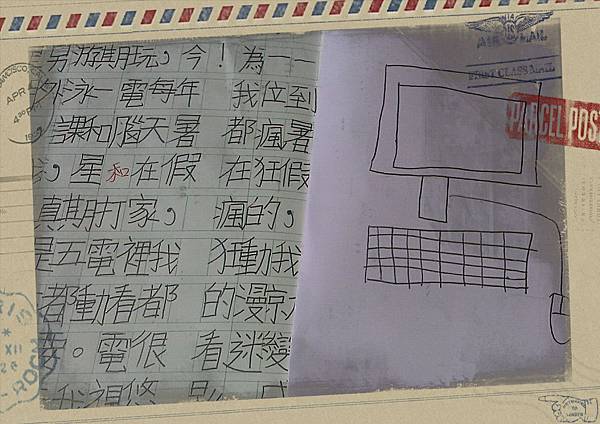 一到暑假,我
變
一位瘋狂的動漫迷
為我都在瘋狂的看
!
今年暑假,我都很悠
,每天在家裡看電視
玩電腦和打電動。我
期一和星期五都要
游泳課,真是
另外
AIR MAIL
FIRST CLASS
PARCEL POS
APR